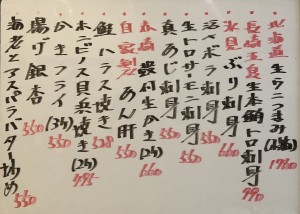 北海道生ウニつまみ(1枚) 1980
長崎五島生本鮪トロ刺身 990
氷見ぶり刺身 660
活〆ボラ刺身 550
生トロサーモン刺身 550
真あじ刺身 550
赤崎殻付生かき(2ケ) 660
自家製あん肝 550
鮭ハラス焼き 528
ホンビノス貝浜焼き(2ケ) 495
かきフライ(3ケ) 550
揚げ銀杏 550
海老とアスパラバター炒め 550